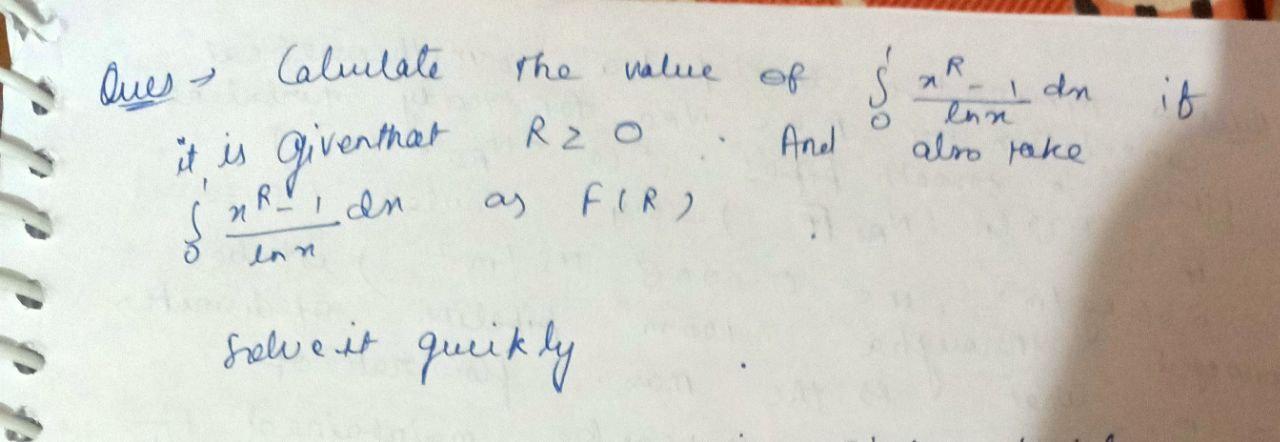 Ques → Calculate the value of ∫₀¹ x^R - 1 / ln x dx if
it is given that R ≥ 0 . And also take
∫₀¹ x^R - 1 / ln x dx as F(R)
Solve it quickly .